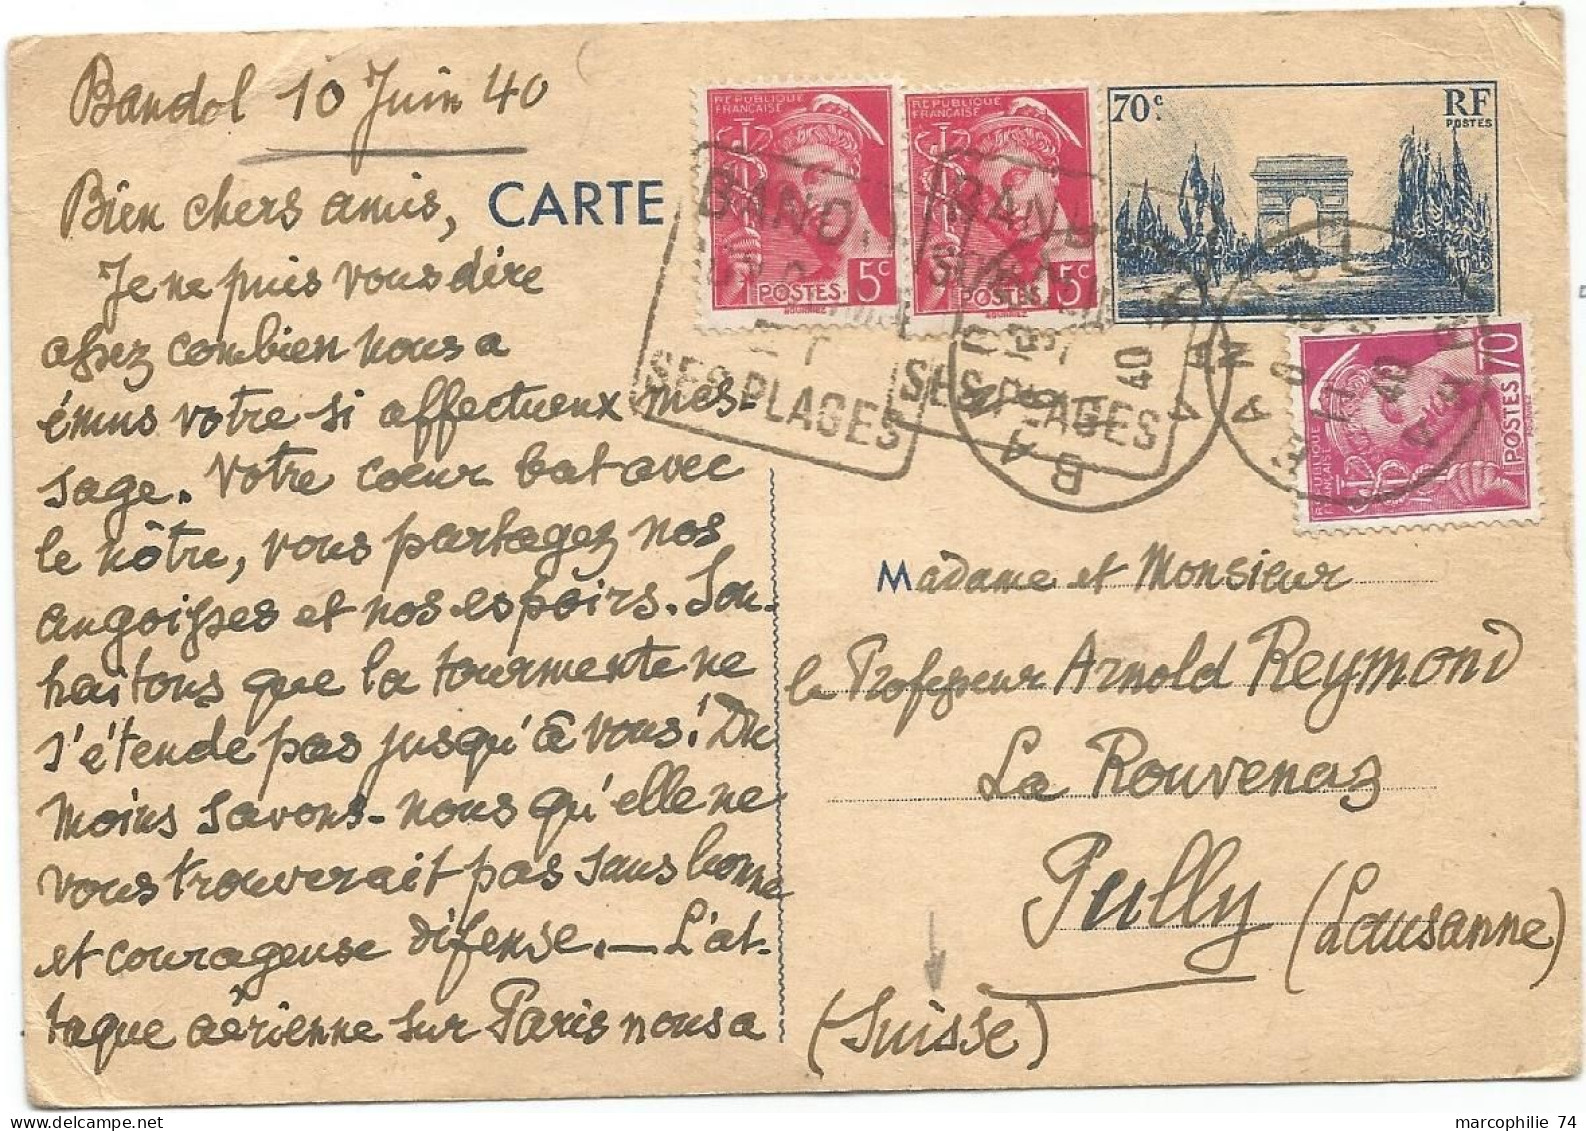 Bandol 10 Juin 40
Bien chers amis,
Je ne puis vous dire
assez combien nous a
émus votre si affectueux mes-
sage. Votre cœur bat avec
le nôtre, vous partagez nos
angoisses et nos espoirs. Sou-
haitons que la tourmente ne
s'étende pas jusqu'à vous! Du
moins savons-nous qu'elle ne
vous trouverait pas sans bonne
et courageuse défense. — L'at-
taque aérienne sur Paris nous a
CARTE
REPUBLIQUE
FRANÇAISE
5c
POSTES
REPUBLIQUE
FRANÇAISE
5c
POSTES
70c
RF
POSTES
REPUBLIQUE
FRANÇAISE
POSTES 70
BANDOL
SES PLAGES
BANDOL
SES PLAGES
Madame et Monsieur
le Professeur Arnold Reymond
La Rouvenaz
Pully (Lausanne)
(Suisse)
marcophilie 74